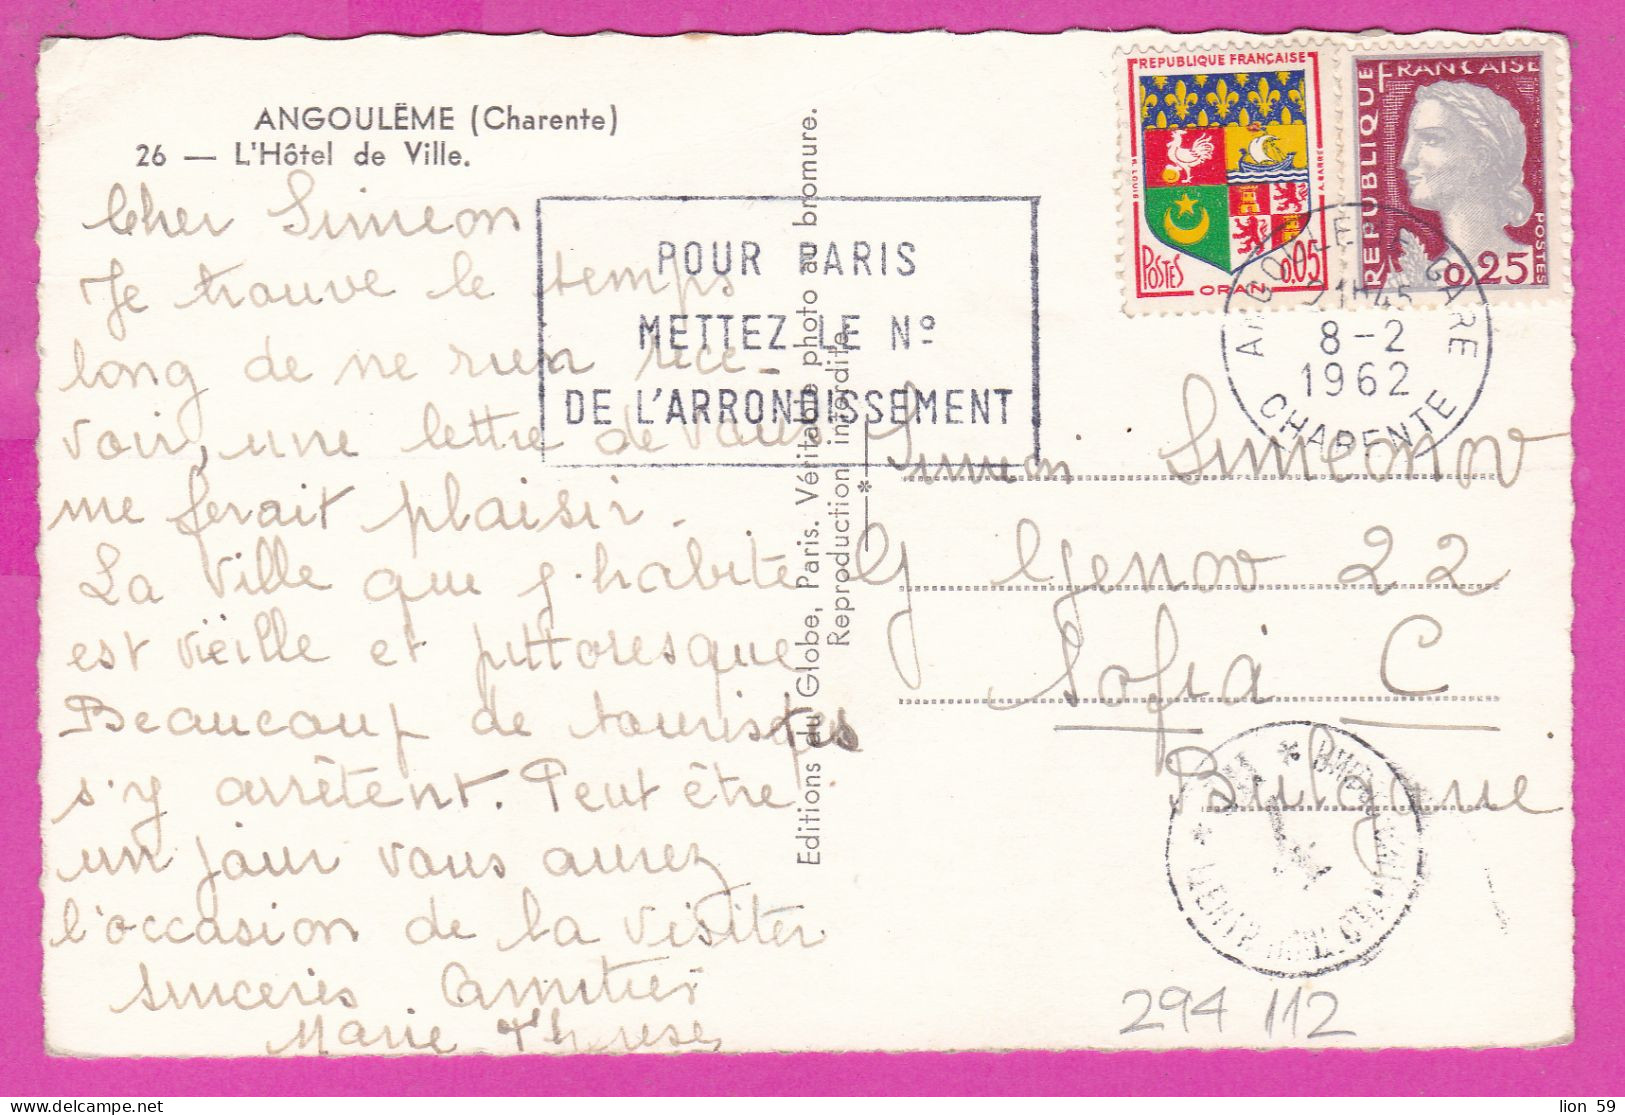 ANGOULÊME (Charente)
26 — L'Hôtel de Ville.
Cher Simeon
Je trouve le temps
long de ne rien rece-
voir, une lettre de vous
me ferait plaisir.
La ville que j'habite
est vieille et pittoresque
Beaucoup de touristes
s'y arrêtent. Peut être
un jour vous aurez
l'occasion de la visiter
sinceres Amitiés
Marie Therese
POUR PARIS
METTEZ LE Nº
DE L'ARRONDISSEMENT
Editions du Globe, Paris. Véritable photo au bromure.
Reproduction interdite.
REPUBLIQUE FRANÇAISE
POSTES 0.05
ORAN
REPUBLIQUE FRANCAISE
POSTES
0.25
ANGOULEME GARE
21H45
8-2
1962
CHARENTE
Simon Simeonov
G Genov 22
Sofia C
Bulgarie
294 112
lion 59